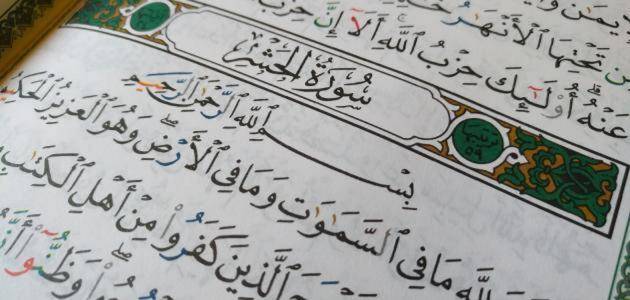 تَحْتِهَا ٱلْأَنْهَٰرُ
عَنْهُ أُو۟لَٰٓئِكَ حِزْبُ ٱللَّهِ أَلَآ إِنَّ حِزْبَ
سُورَةُ الحَشْرِ
ترتيبها ٥٩
بِسْمِ ٱللَّهِ ٱلرَّحْمَٰنِ ٱلرَّحِيمِ
لِلَّهِ مَا فِي ٱلسَّمَٰوَٰتِ وَمَا فِي ٱلْأَرْضِ وَهُوَ ٱلْعَزِيزُ
ٱلَّذِينَ كَفَرُوا۟ مِنْ أَهْلِ ٱلْكِتَٰبِ
وَظَنُّوٓا۟